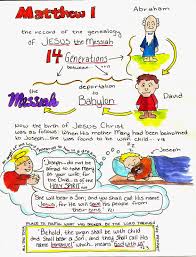 Matthew 1
Abraham
the record of the genealogy
of JESUS the Messiah
14 Generations
between
deportation
to
Babylon
the Messiah
David
Now the birth of Jesus Christ
was as follows: When his mother Mary had been betrothed
to Joseph... she was found to be with child
Joseph
Joseph... do not be
afraid to take Mary
as your wife; for
the Child... is of the
HOLY SPIRIT
She will bear a Son; and you shall call His name
Jesus, for He will save His people from
their sins
Behold, the virgin shall be with child
and shall bear a Son, and they shall call His
name Immanuel, which means, "God with us"